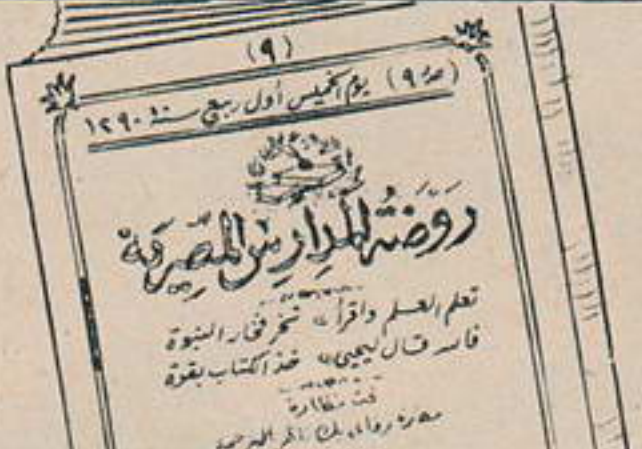 (٩)
(نمرة ٩) يوم الخميس أول ربيع سنة ١٢٩٠
روضة المدارس المصرية
تعلم العلم واقرأ * تحز فخار النبوة
فالله قال ليحيى * خذ الكتاب بقوة